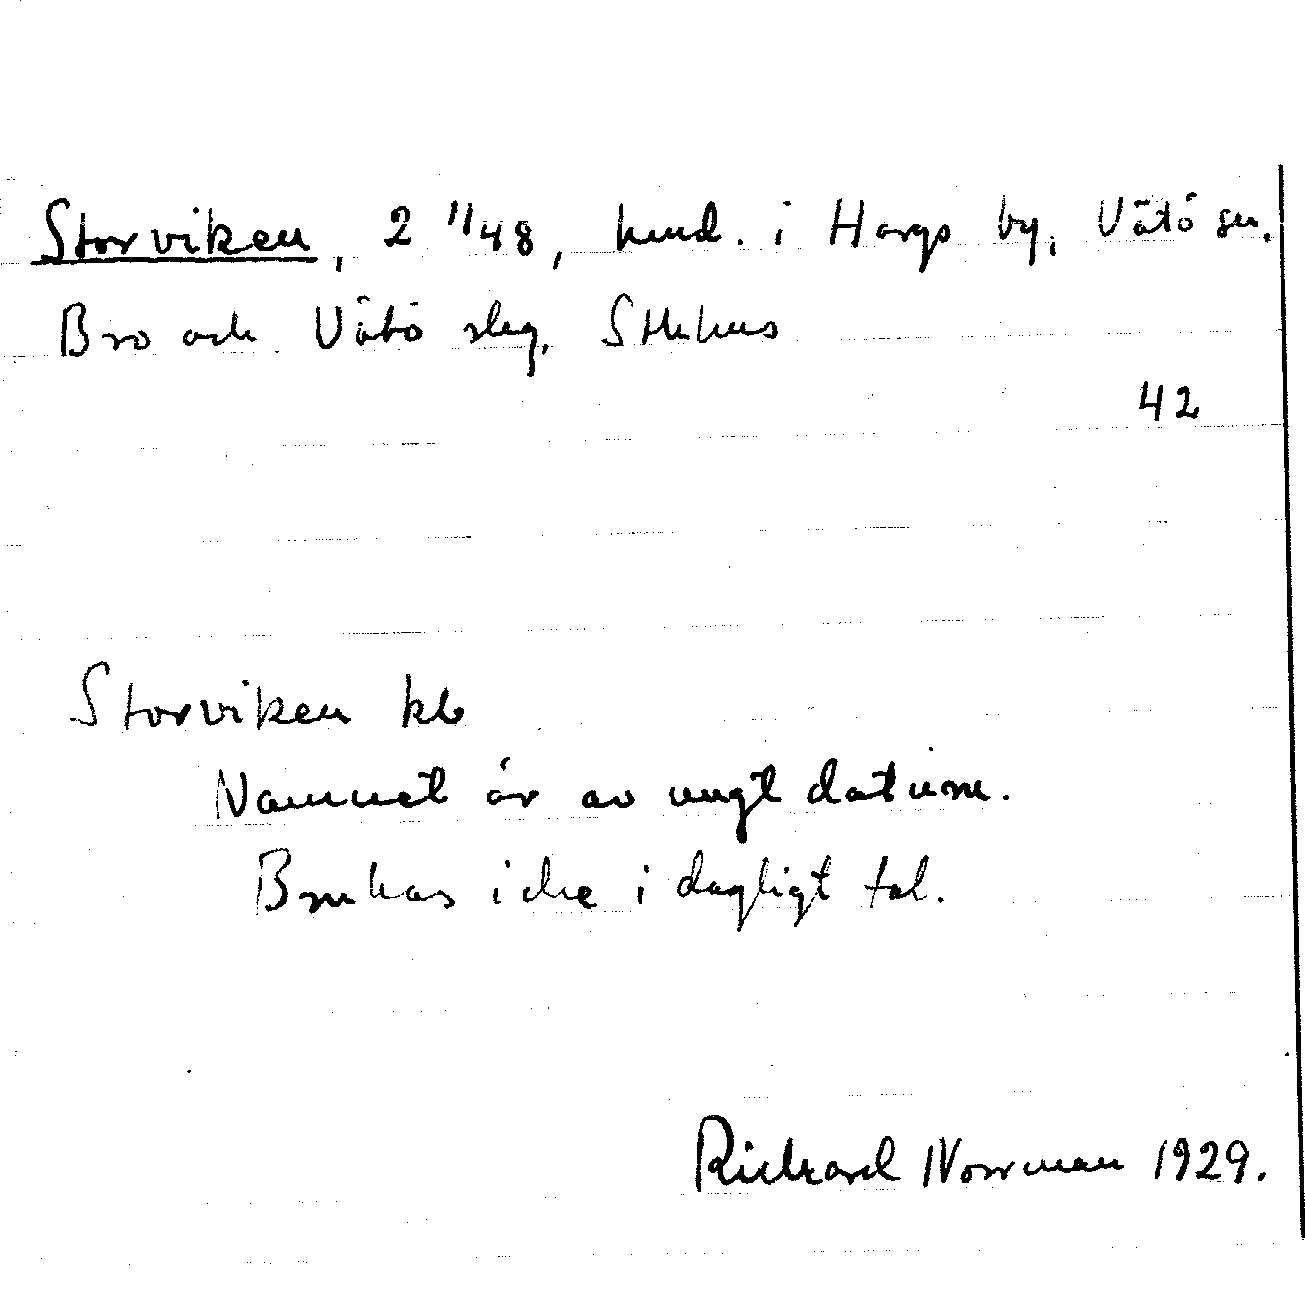 Storviken, 2 11/48, hmd. i Hargs by, Vätö sn.
Bro och Vätö slg, Sthlms
42
Storviken
Namnet är av ungt datum.
Brukas icke i dagligt tal.
Rickard Norrman 1929.